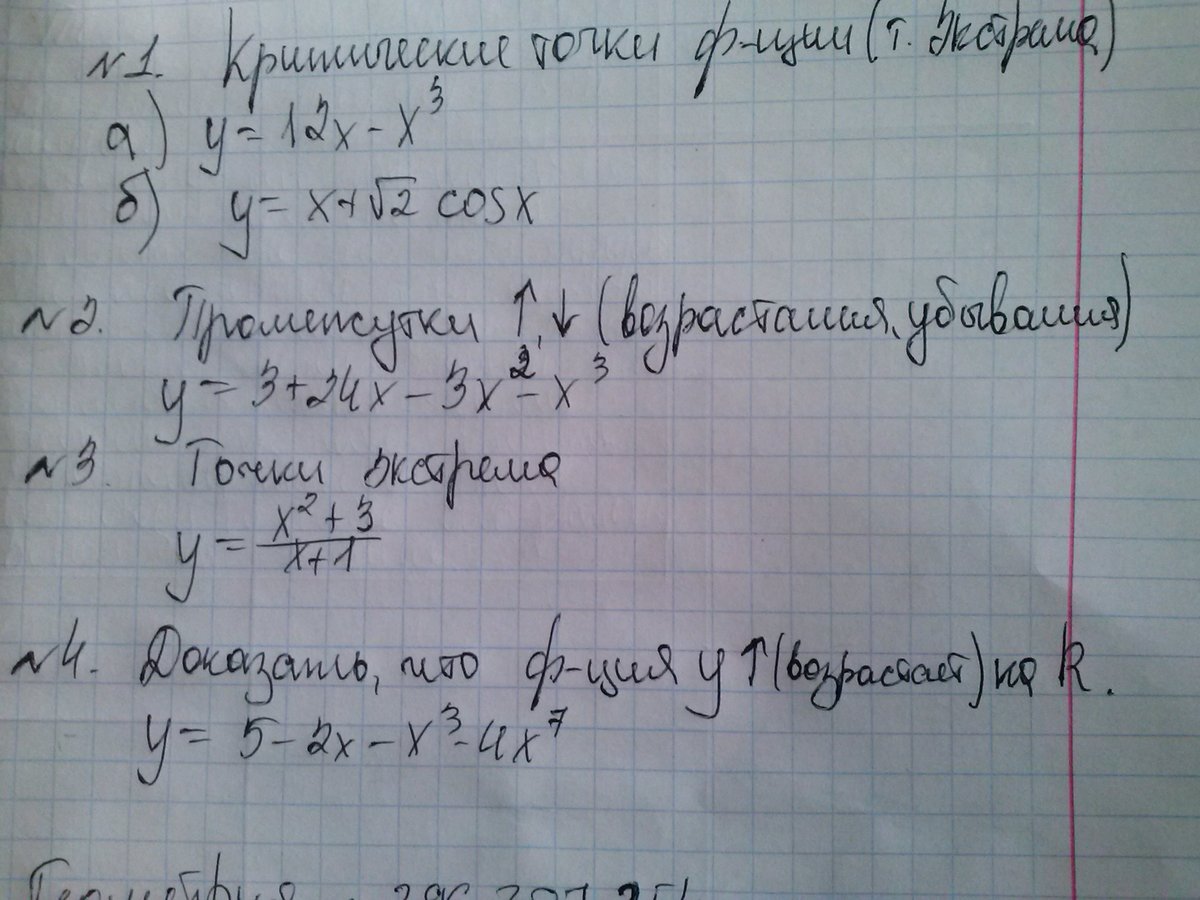 №1. Критические точки ф-ции (т. Экстрема)
а) y = 12x - x³
б) y = x + √2 cosx
№2. Промежутки ↑, ↓ (возрастания, убывания)
y = 3 + 24x - 3x² - x³
№3. Точки экстрема
y = (x² + 3)/(x + 1)
№4. Доказать, что ф-ция y ↑ (возрастает) на R.
y = 5 - 2x - x³ - 4x⁷
Геометрия